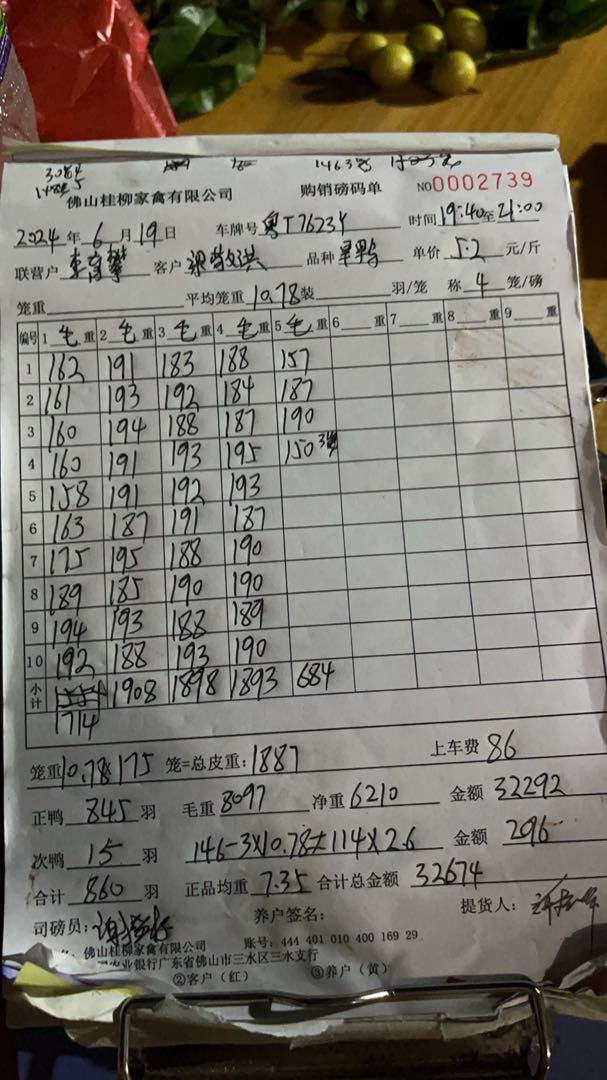 3084
1463
佛山桂柳家禽有限公司 购销磅码单 NO0002739
2024年6月19日 车牌号 粤T7623Y 时间19:40至21:00
联营户 客户 品种 单价 5.2 元/斤
笼重 平均笼重 10.78 装 羽/笼 称 4 笼/磅
编号 1 毛 重 2 毛 重 3 毛 重 4 毛 重 5 毛 重 6 重 7 重 8 重 9 重
1 162 191 183 188 157
2 161 193 192 184 187
3 160 194 188 187 190
4 160 191 193 195 150
5 158 191 192 193
6 163 187 191 187
7 175 195 188 190
8 189 185 190 190
9 194 193 188 189
10 192 188 193 190
小计 1908 1898 1893 684
1714
笼重 10.78 175 笼=总皮重: 1887 上车费 86
正鸭 845 羽 毛重 8097 净重 6210 金额 32292
次鸭 15 羽 146-3X10.78=114X2.6 金额 296
合计 860 羽 正品均重 7.35 合计总金额 32674
司磅员: 养户签名: 提货人:
佛山桂柳家禽有限公司 账号: 444 401 010 400 169 29
农业银行广东省佛山市三水区三水支行
②客户(红) ③养户(黄)